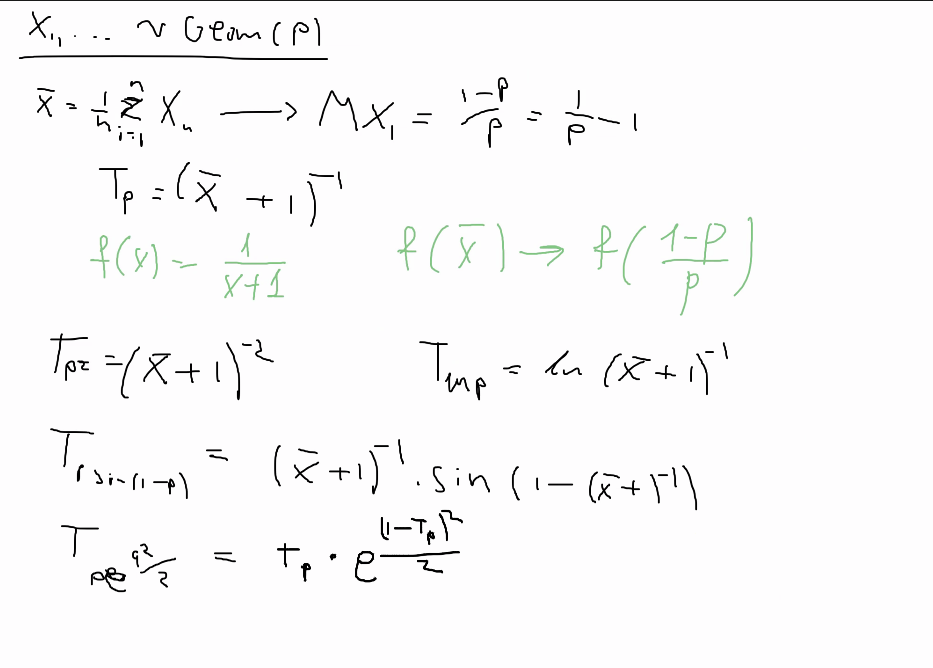 X₁, ... ~ Geom(p)
x̄ = 1/n ∑_{i=1}^{n} Xₙ ⟶ MX₁ = (1-p)/p = 1/p - 1
T_p = (x̄ + 1)^{-1}
f(x) = 1/(x+1) f(x̄) → f((1-p)/p)
T_{p²} = (x̄ + 1)^{-2} T_{ln p} = ln (x̄ + 1)^{-1}
T_{p sin(1-p)} = (x̄ + 1)^{-1} · sin (1 - (x̄ + 1)^{-1})
T_{pe^{q²/2}} = T_p · e^{(1-T_p)²/2}